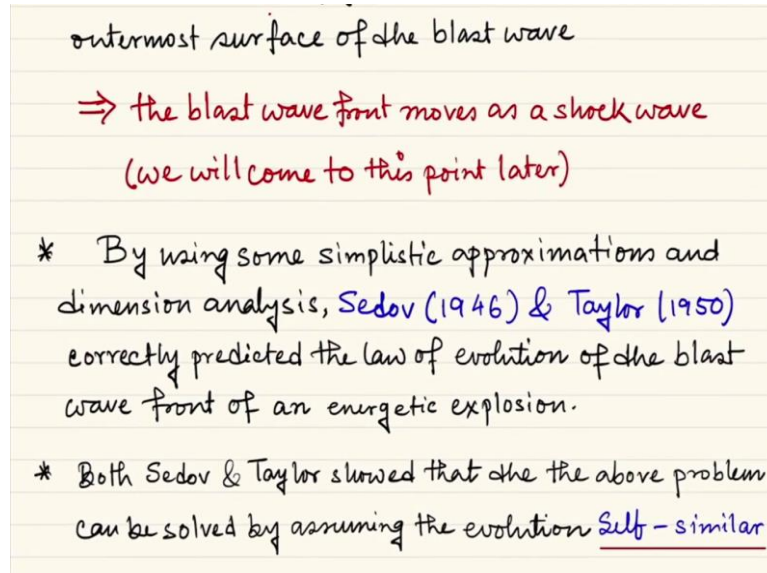 outermost surface of the blast wave
⇒ the blast wave front moves as a shock wave
(we will come to this point later)
* By using some simplistic approximations and
dimension analysis, Sedov (1946) & Taylor (1950)
correctly predicted the law of evolution of the blast
wave front of an energetic explosion.
* Both Sedov & Taylor showed that the the above problem
can be solved by assuming the evolution Self-similar